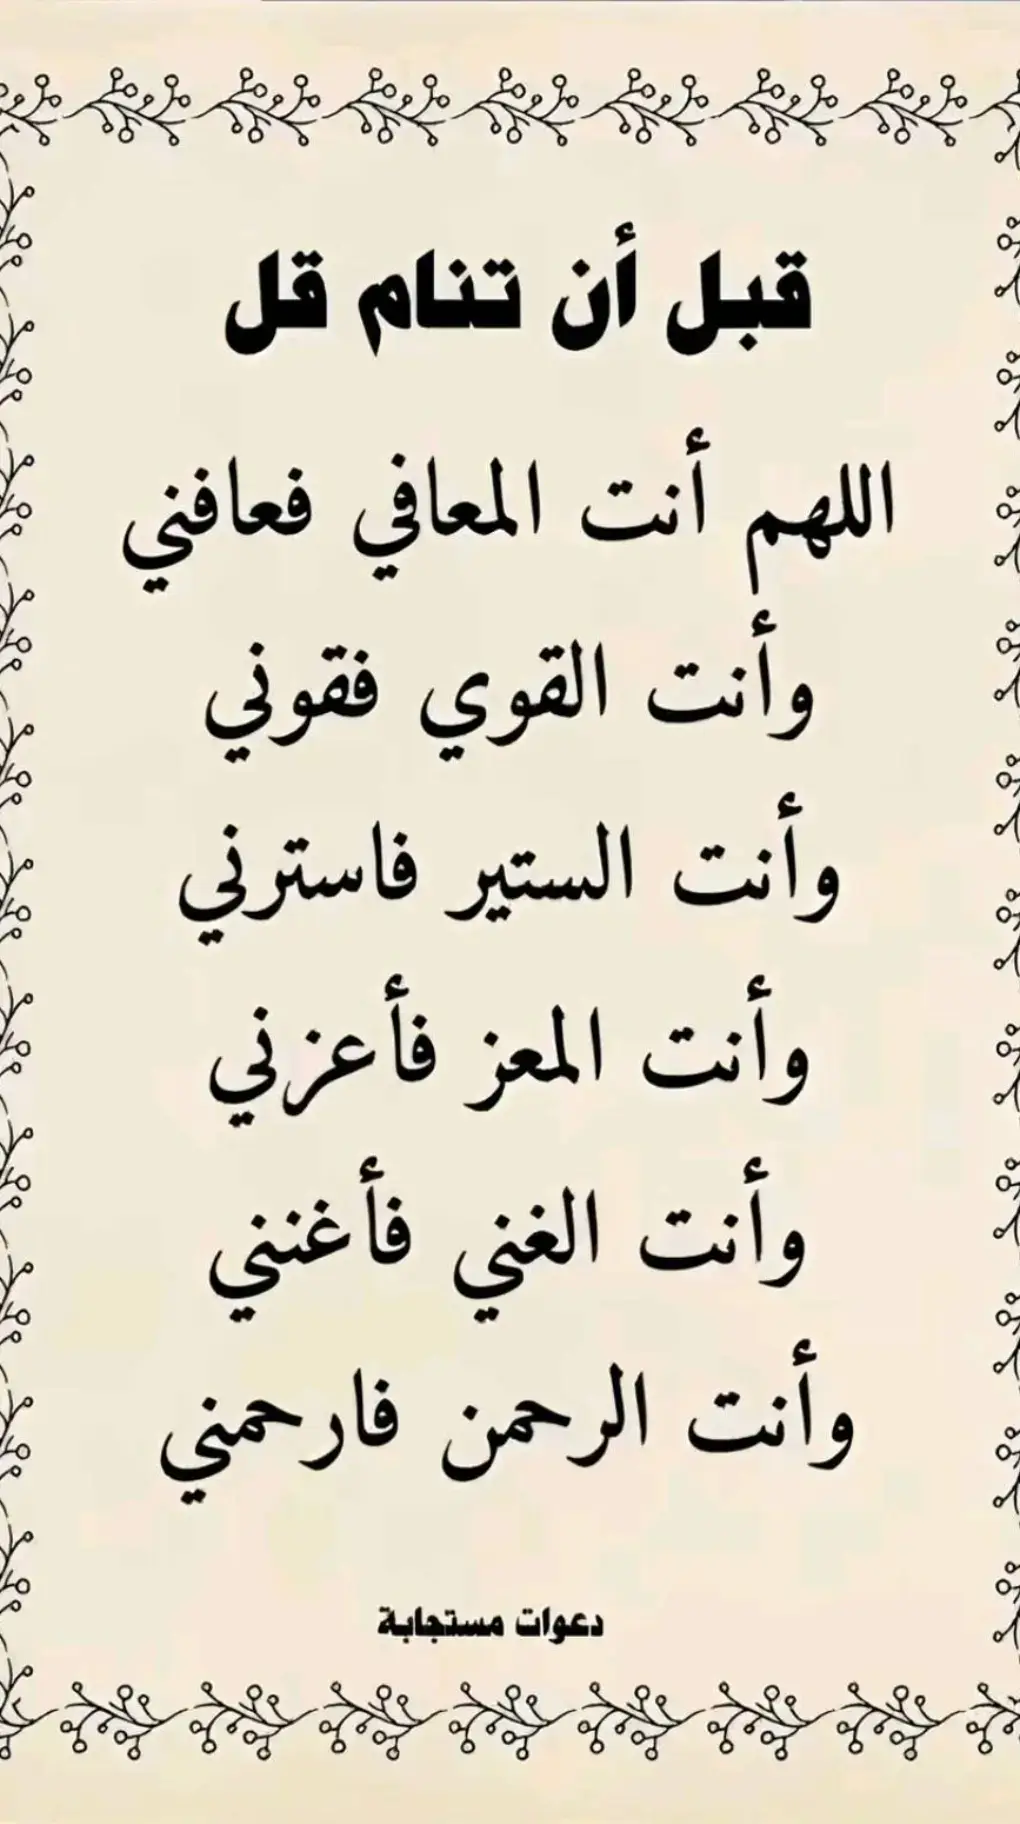 قبل أن تنام قل
اللهم أنت المعافي فعافني
وأنت القوي فقوني
وأنت الستير فاسترني
وأنت المعز فأعزني
وأنت الغني فأغنني
وأنت الرحمن فارحمني
دعوات مستجابة